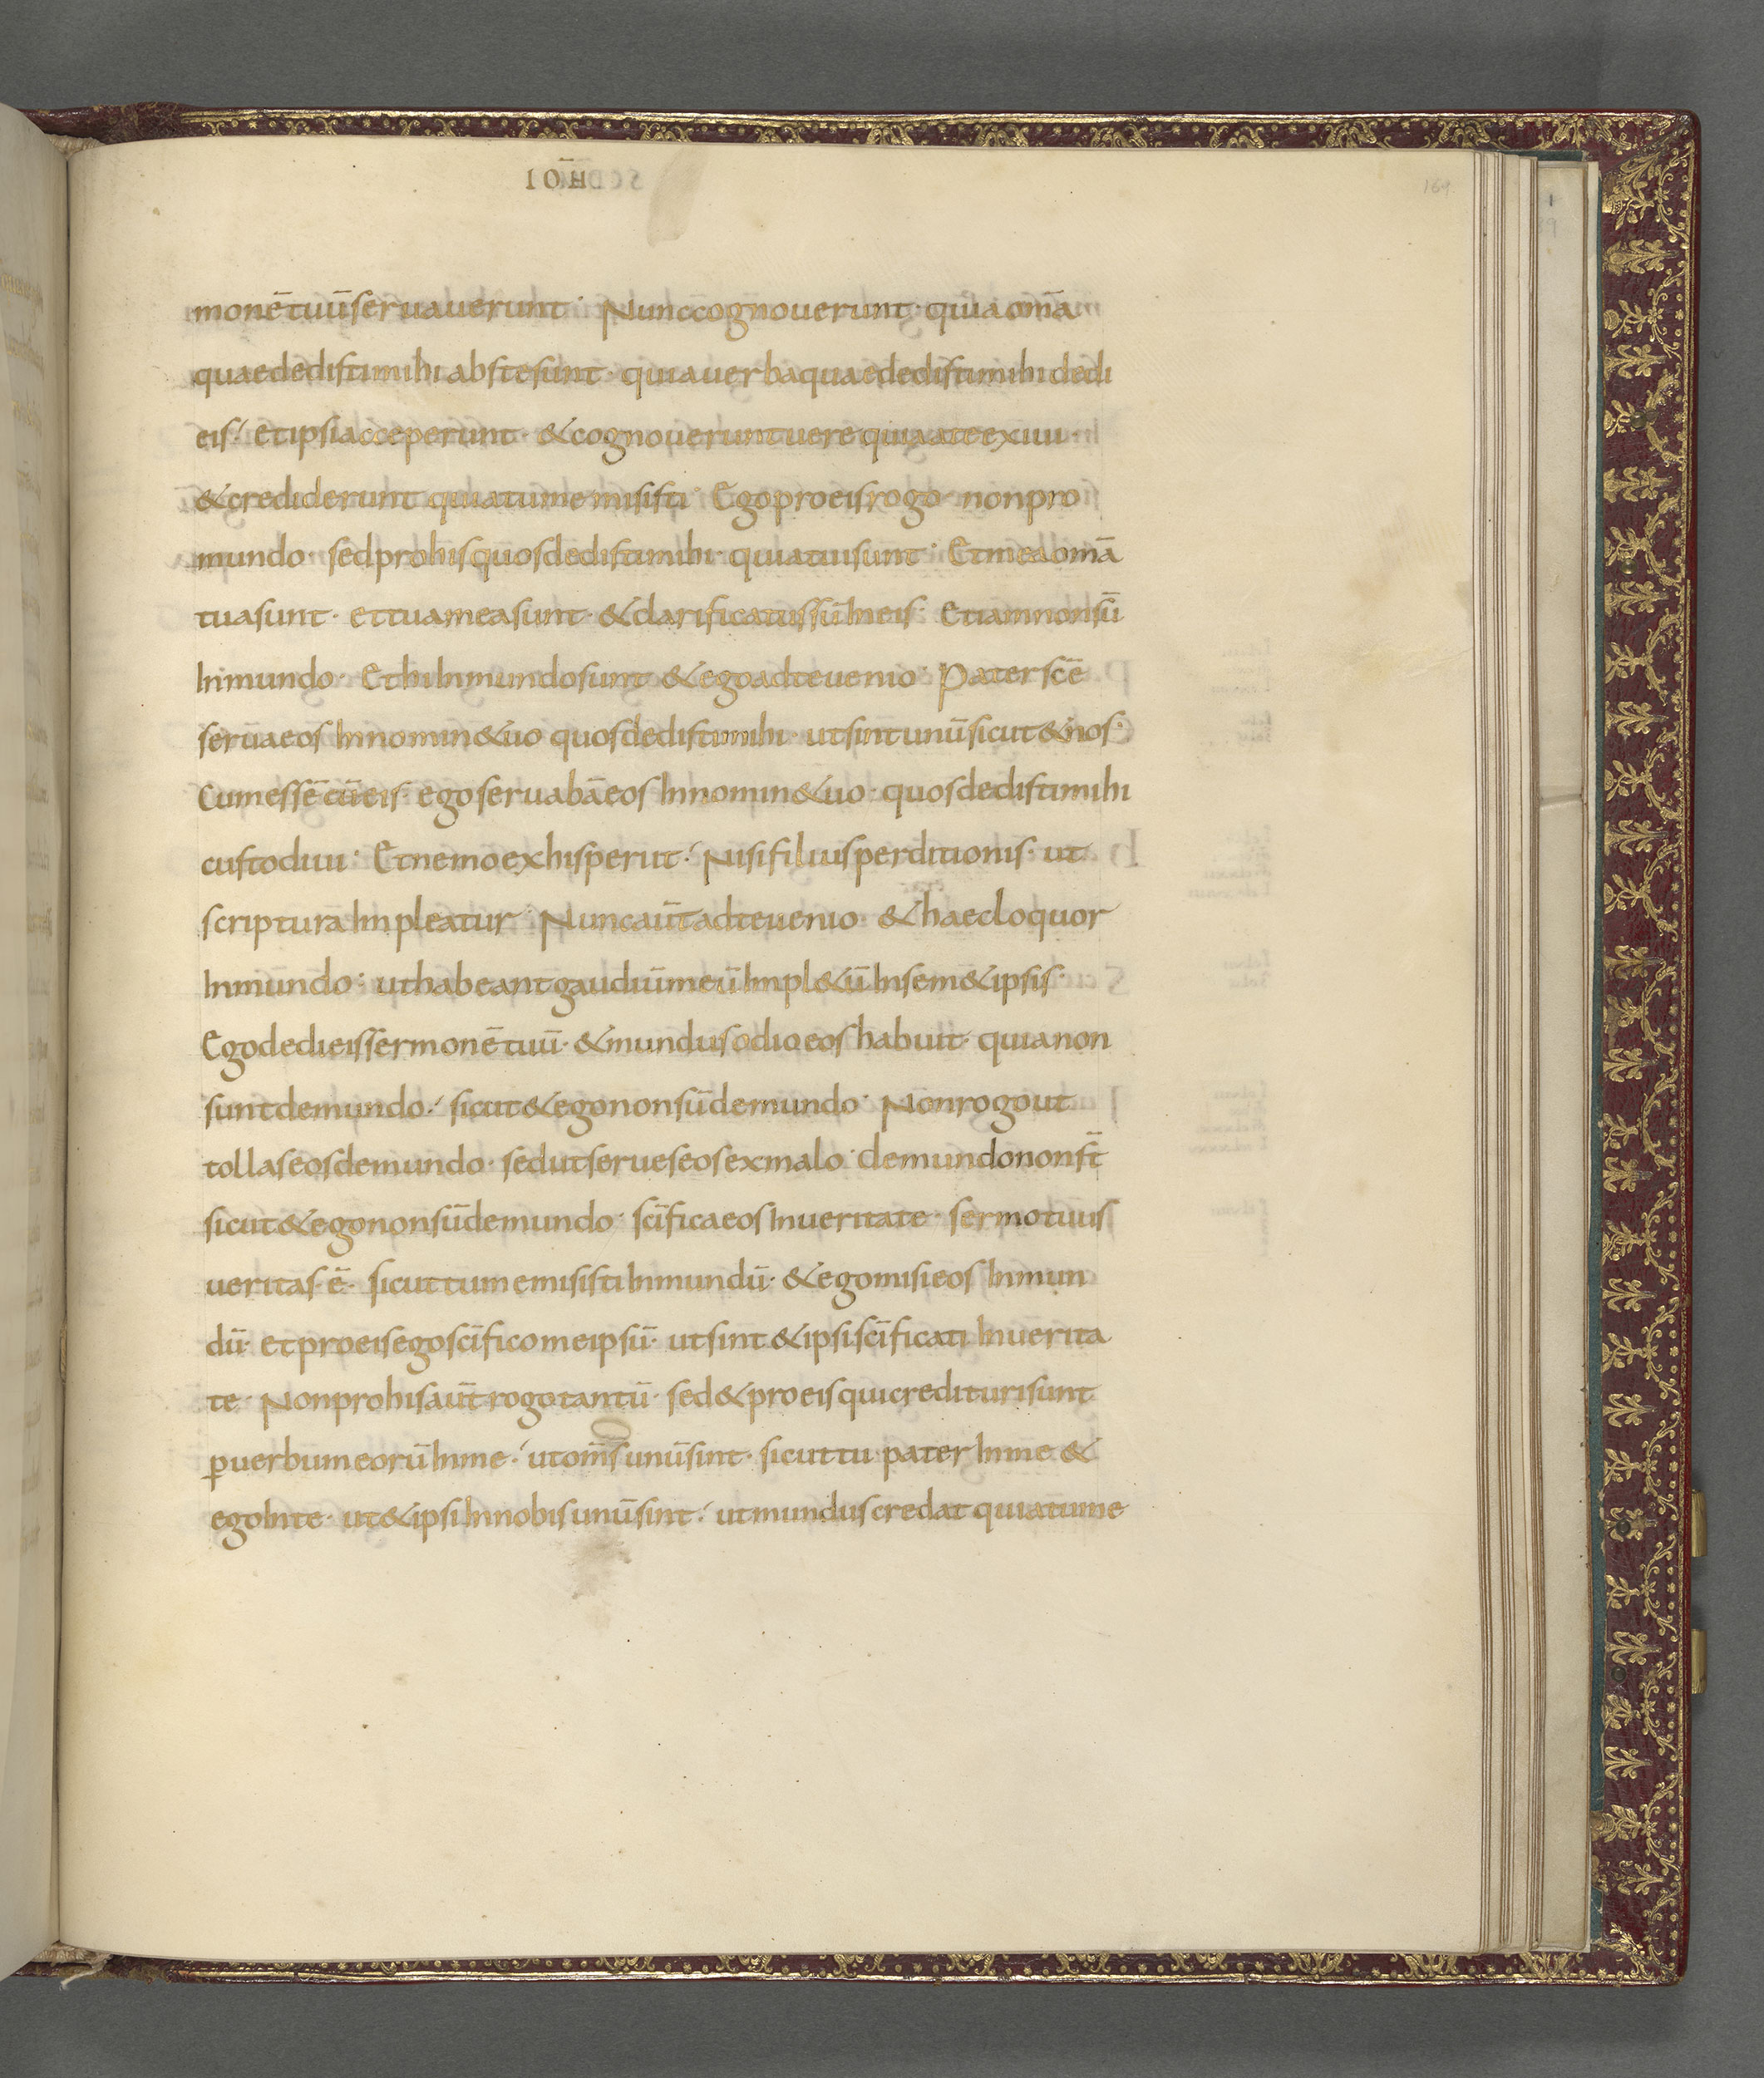 IOH̄
169
monē tuū seruauerunt · Nunc cognouerunt · quia om̄a
quae dedisti mihi abs te sunt · quia uerba quae dedisti mihi dedi
eis · et ipsi acceperunt · & cognouerunt uere quia a te exiui ·
& crediderunt quia tu me misisti · Ego pro eis rogo · non pro
mundo · sed pro his quos dedisti mihi · quia tui sunt · Et mea om̄a
tua sunt · et tua mea sunt · & clarificatus sū In eis · Et iam non sū
In mundo · Et hi In mundo sunt & ego ad te uenio · Pater sc̄e
serua eos In nomin& uo quos dedisti mihi · ut sint unū sicut & nos ·
Cum essē cū eis · ego seruabā eos In nomin& uo · quos dedisti mihi
custodiui · Et nemo ex his periit · Nisi filius perditionis · ut
scriptura Impleatur · Nunc aūt ad te uenio & haec loquor
In mundo · ut habeant gaudiū meū Impl&ū In sem&ipsis ·
Ego dedi eis sermonē tuū · & mundus odio eos habuit · quia non
sunt de mundo · sicut & ego non sū de mundo · Non rogo ut
tollas eos de mundo · sed ut serues eos ex malo · de mundo non st̄
sicut & ego non sū de mundo · sc̄ifica eos In ueritate · sermo tuus
ueritas ē · sicut tu me misisti In mundū · & ego misi eos In mun
dū · et pro eis ego sc̄ifico me ipsū · ut sint & ipsi sc̄ificati In uerita
te · Non pro his aūt rogo tantū · sed & pro eis qui credituri sunt
ꝑ uerbum eorū In me · ut om̄s unū sint · sicut tu pater In me &
ego In te · ut & ipsi In nobis unū sint · ut mundus credat quia tu me